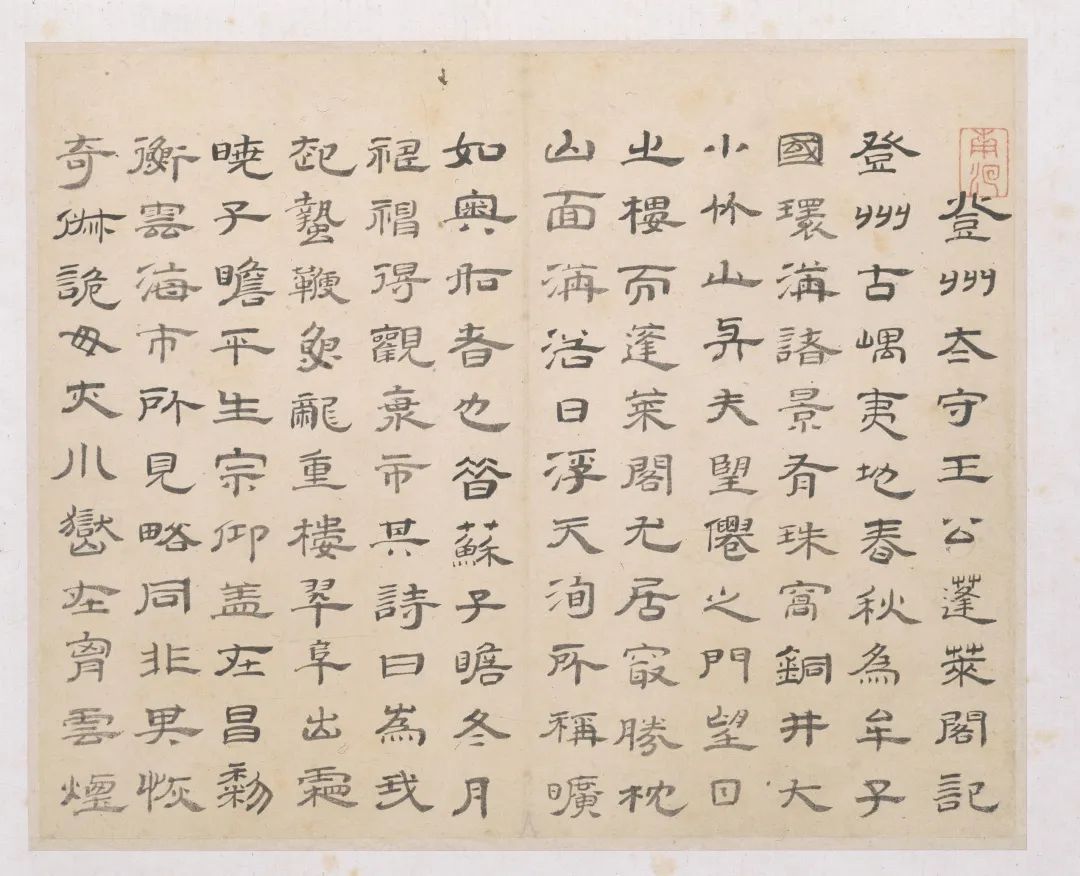 登州太守王公蓬萊閣記
登州古嵎夷地春秋為牟子
國環海諸景有珠窩銅井大
小竹山与夫望僊之門望日
之樓而蓬萊閣尤居最勝枕
山面海浴日浮天洵所稱曠
如奧如者也昔蘇子瞻冬月
得觀市其詩曰為我
起蟄鞭魚龍重樓翠阜出霜
曉子瞻平生宗仰蓋在昌黎
衡雲海市所見略同非異恢
奇俶詭毋亦川嶽在胷雲煙